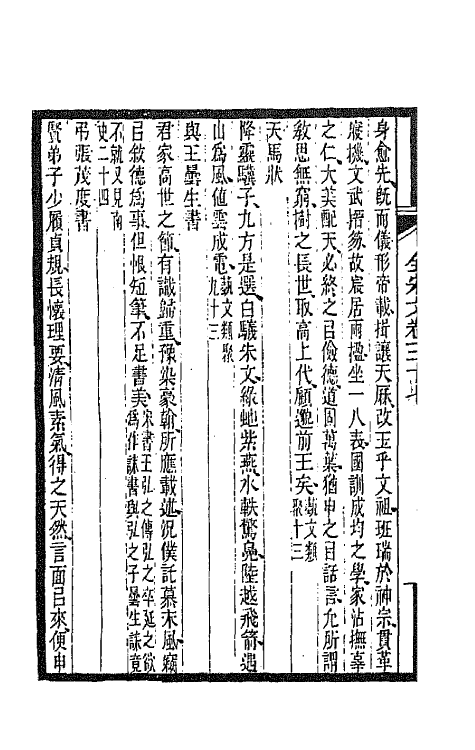 身愈先既而儀形帝載揖讓天厤改玉乎文祖班瑞於神宗貫革
寢機文武捂䇲故宸居兩楹坐一八表國訓成均之學家沾撫辜
之仁大美配天必終之㠯儉德道固萬葉猶申之㠯話言允所謂
敘思無窮樹之長世取高上代顧邈前王矣藝文類聚十三
天馬狀
降靈驥子九方是選白驥朱文綠虵紫燕水軼驚鳧陸越飛箭遇
山爲風値雲成電藝文類聚九十三
與王曇生書
君家高世之節有識歸重豫染豪翰所應載述況僕託慕末風竊
㠯敘德爲事但恨短筆不足書美宋書王弘之傳弘之卒延之欲爲作誄書與弘之子曇生誄竟不就又見南史二十四
弔張茂度書
賢弟子少履貞規長懷理要淸風素氣得之天然言面㠯來便申
全宋文卷三十七